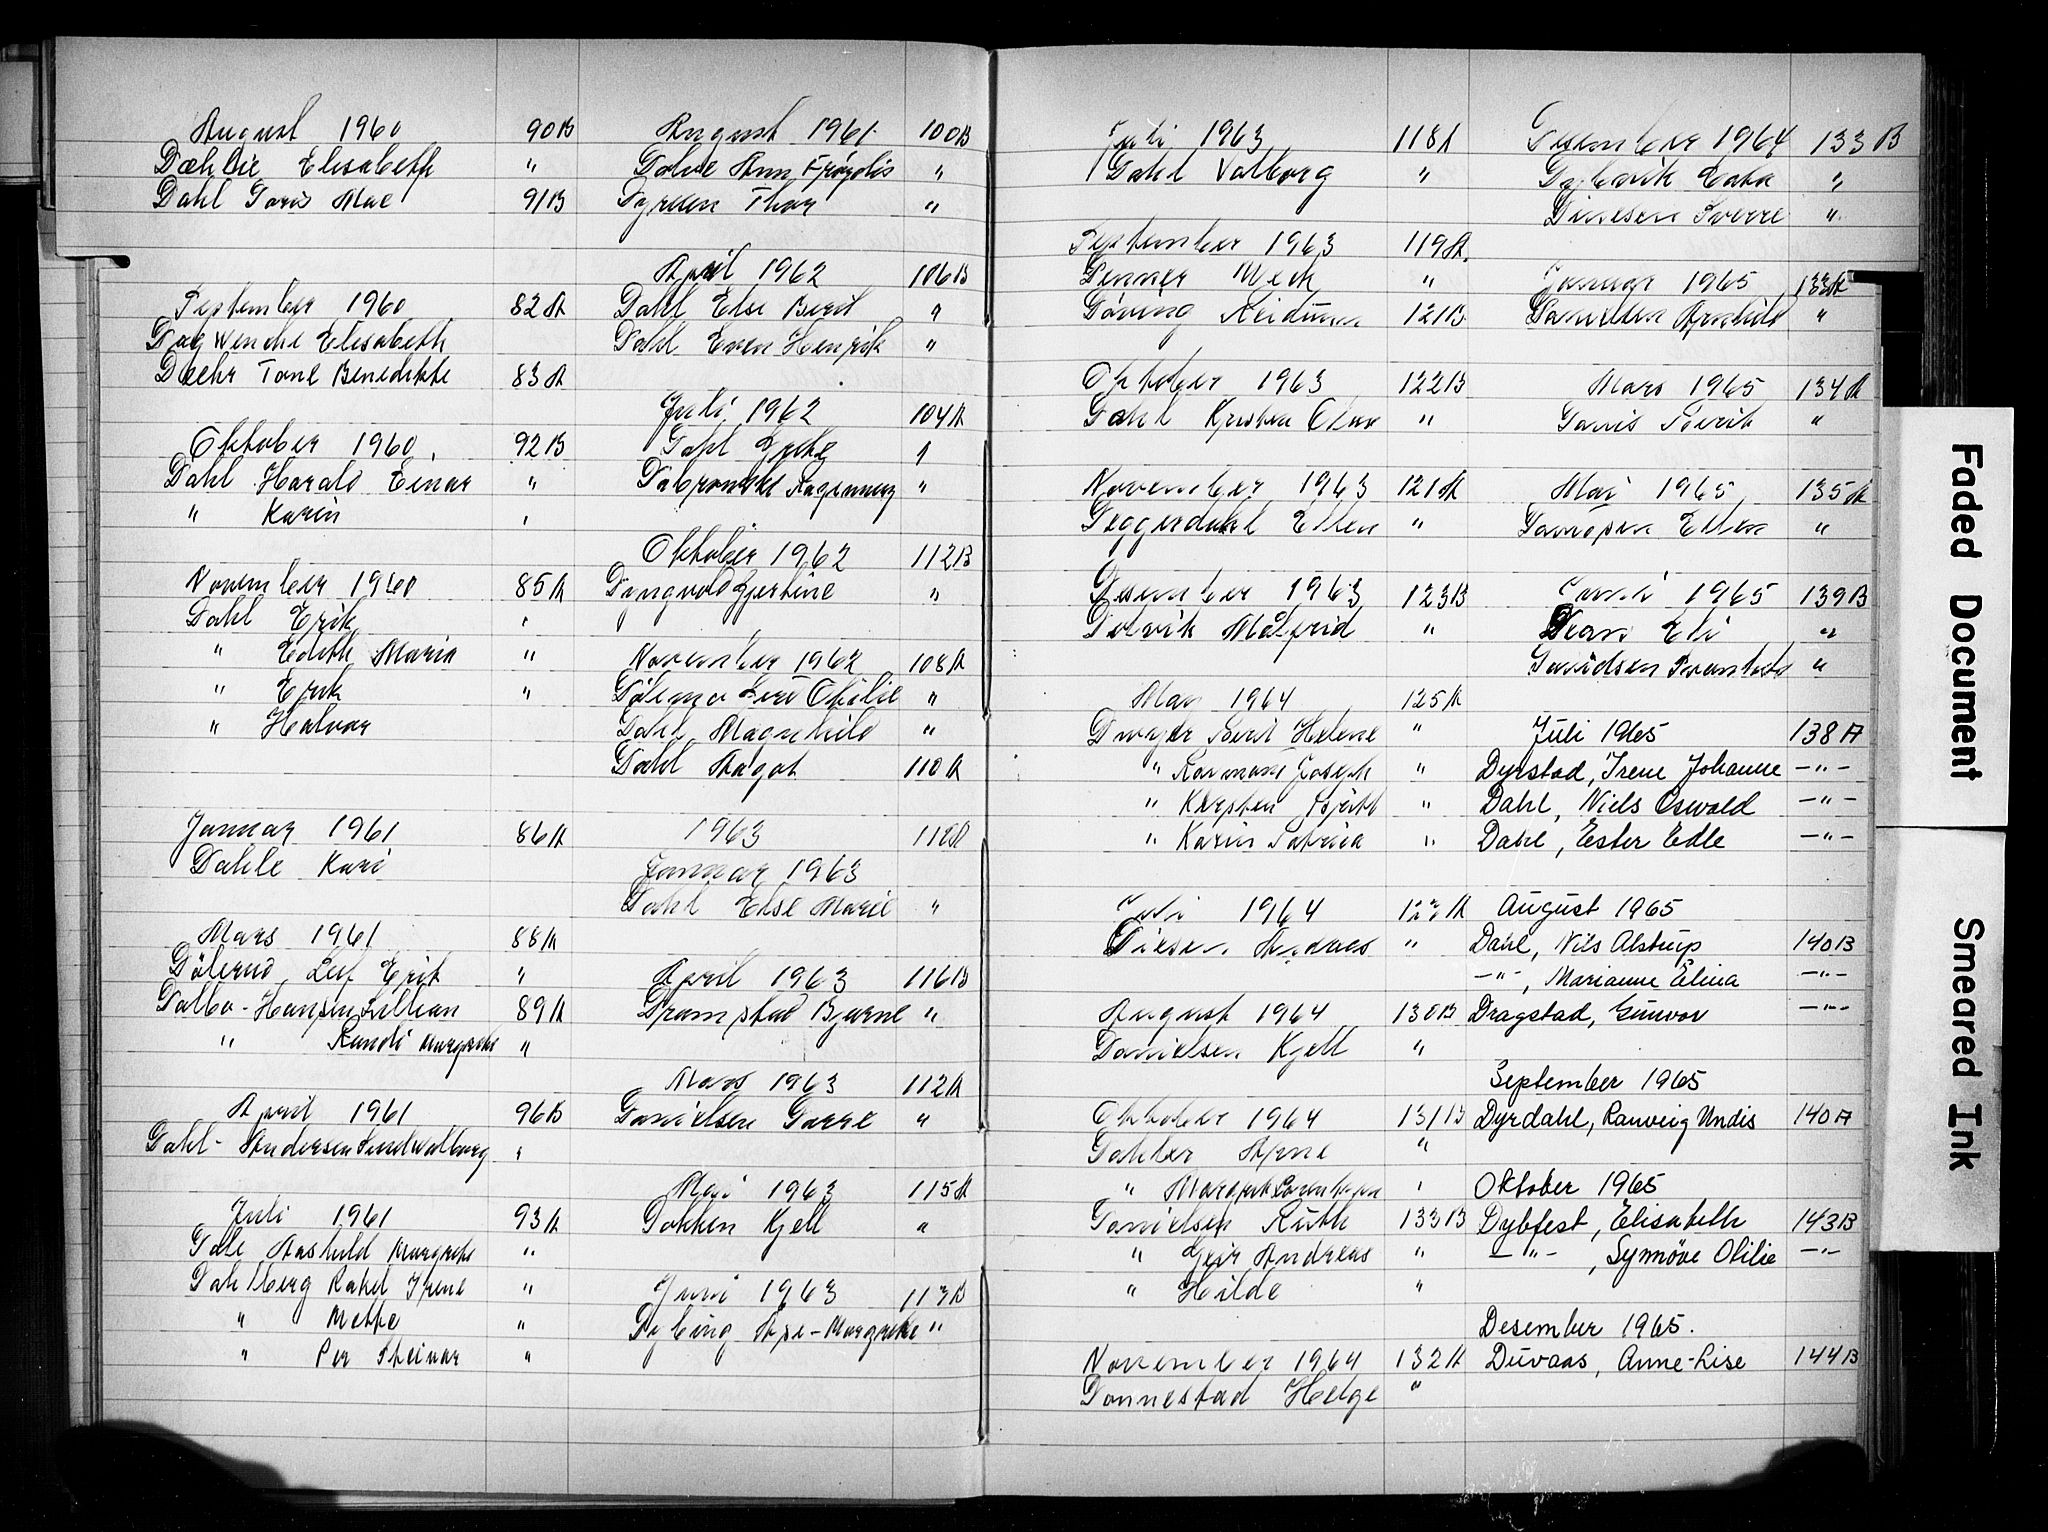 August 1960 90B
Dæhlie Elisabeth "
Dahl Doris Mae 91B
September 1960 82A
Dag Wenche Elisabeth
Dæhr Tone Benedikte 83A
Oktober 1960. 92B
Dahl Harald Einar "
" Karin "
November 1960 85A
Dahl Erik "
" Edith Maria "
" Erik "
" Halvor
Januar 1961 86A
Dahle Kari
Mars 1961 88A
Dølerud Leif Erik "
Dalbo-Hansen Lillian 89A
" Randi Margrethe "
April 1961 96B
Dahl-Andersen "
Juli 1961 93A
Dale Aashild Margrethe "
Dahlberg Rakel Irene "
" Mette "
" Per Steinar "
August 1961 100B
Dahle Ann Frøydis "
Dyreen Thor "
April 1962 106B
Dahl Else Berit "
Dahl Even Henrik "
Juli 1962 104A
Dahl Grethe "
Dabrowski "
Oktober 1962 112B
Dyngvold Gjertine "
November 1962 108A
Othilie "
Dahl Magnhild "
Dahl Aagot 110A
1963 112A
Januar 1963
Dahl Else Marie "
April 1963 116B
Dramstad Bjarne "
Mars 1963 112A
Danielsen "
Mai 1963 115A
Dokken Kjell "
Juni 1963 113B
Dybing Åse-Margrethe "
Juli 1963 118A
Dahl Valborg "
September 1963 119A.
"
Døving Reidunn 121B
Oktober 1963 122B
Dahl Kristen Olav "
November 1963 121A
Deggerdahl Ellen "
Desember 1963 123B
Dolvik Målfrid "
Mars 1964 125A
Dwyer Berit Helene "
" Joseph "
" Kirsten "
" Karin Patricia "
Juli 1964
Andreas "
August 1964 130B
Danielsen Kjell "
Oktober 1964 131B
Dahler Arne "
" "
Danielsen Ruth 133B
" Geir Andreas "
" Hilde "
November 1964 132A
Donnestad Helge "
Desember 1964 133B
Dybvik "
Dinesen Sverre "
Januar 1965 133A
Danielsen "
Mars 1965 134A
"
Mai 1965 135A
Ellen "
Juni 1965 139B
Eli "
Davidsen "
Juli 1965 138A
Dyrstad, Irene Johanne -"-
Dahl, Niels Oswald -"-
Dahl, Ester Edle -"-
August 1965
Dahl, Nils Alstrup 140B
-"-, Marianne Elina -"-
Dragstad, Gunvor -"-
September 1965
Dyrdahl, Ranveig Undis 140A
Oktober 1965
Dybfest, Elisabeth 143B
-"-, Synnøve Otilie -"-
Desember 1965.
Duvaas, Anne-Lise 144B
Faded Document
Smeared Ink